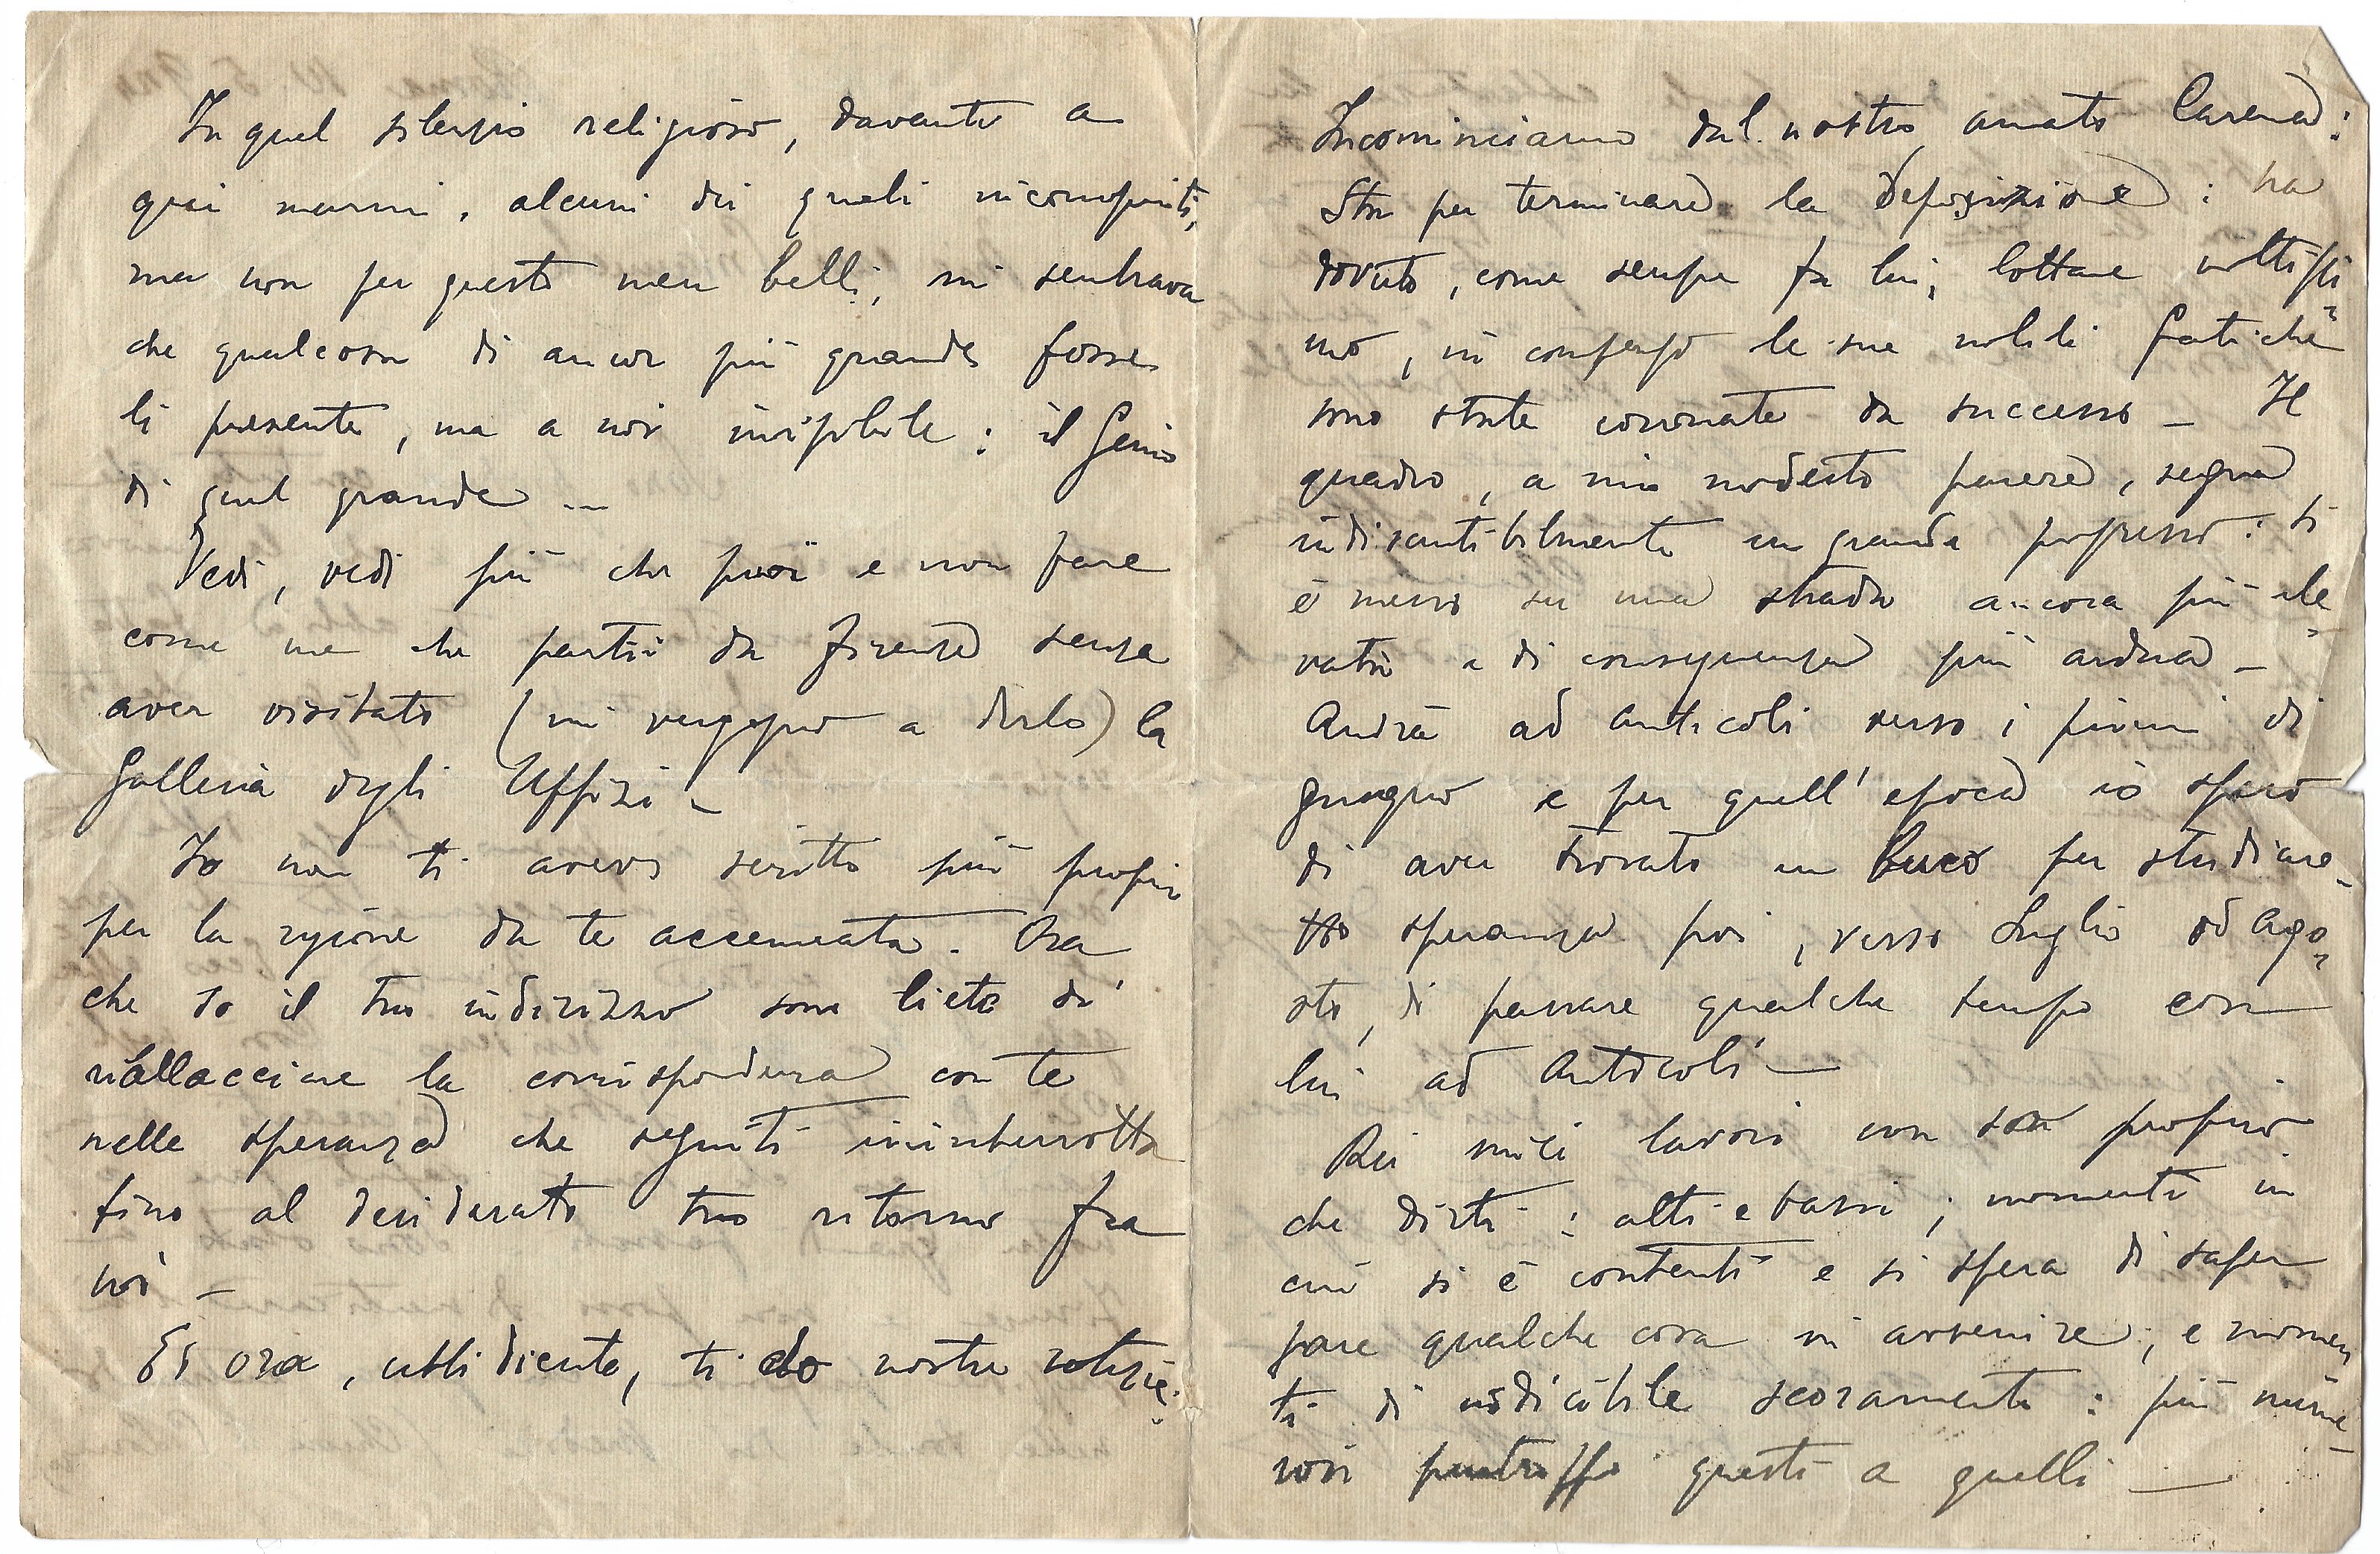 In quel silenzio religioso, davanti a
quei marmi, alcuni dei quali incompiuti,
ma non per questo men belli, mi sembrava
che qualcosa di ancor più grande fosse
lì presente, ma a noi invisibile: il Genio
di quel grande ...
Vedi, vedi più che puoi e non fare
come me che partii da Firenze senza
aver visitato (mi vergogno a dirlo) la
Galleria degli Uffizi –
Io non ti avevo scritto più proprio
per la ragione da te accennata. Ora
che so il tuo indirizzo sono lieto di
riallacciare la corrispondenza con te
nella speranza che seguiti ininterrotta
fino al desiderato tuo ritorno fra
noi –
Ed ora, ubbidiente, ti do nostre notizie:
Incominciamo dal nostro amato Carena:
Sta per terminare la deposizione: ha
dovuto, come sempre fa lui, lottare moltissi-
mo, in compenso le sue nobili fatiche
sono state coronate da successo – Il
quadro, a mio modesto parere, segna
indiscutibilmente un grande progresso: si
è messo su una strada ancora più ele-
vata e di conseguenza più ardua –
Andrà ad Anticoli verso i primi di
giugno e per quell'epoca io spero
di aver trovato un buco per studiare –
Ho speranza poi, verso Luglio od Ago-
sto, di passare qualche tempo con
lui ad Anticoli –
Dei miei lavori non so proprio
che dirti: alti e bassi; momenti in
cui si è contenti e si spera di saper
fare qualche cosa in avvenire, e momen
ti di indicibile scoramento: più nume-
rosi purtroppo questi a quelli —